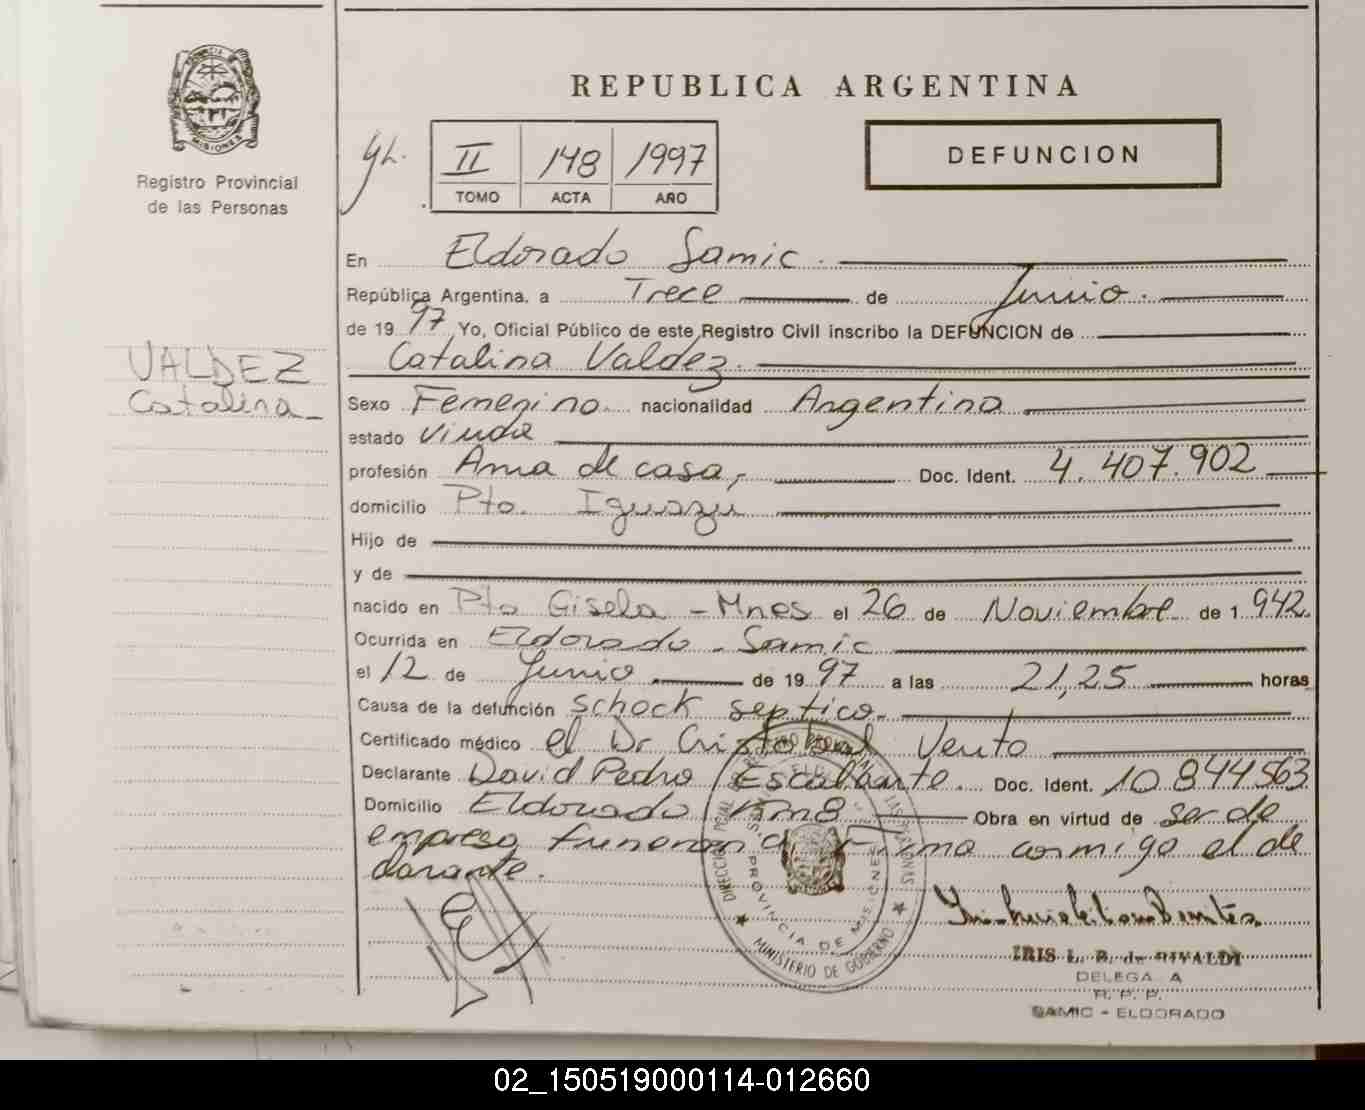 PROVINCIA DE
MISIONES
Registro Provincial
de las Personas
VALDEZ
Catalina
REPUBLICA ARGENTINA
II 148 1997
TOMO ACTA AÑO
DEFUNCION
En Eldorado Samic.
República Argentina, a Trece de Junio.
de 1997 Yo, Oficial Público de este Registro Civil inscribo la DEFUNCION de
Catalina Valdez.
Sexo Femenino. nacionalidad Argentina
estado viuda
profesión Ama de casa, Doc. Ident. 4.407.902
domicilio Pto. Iguazu
Hijo de
y de
nacido en Pto Gisela - Mnes el 26 de Noviembre de 1.942.
Ocurrida en Eldorado - Samic
el 12 de Junio de 1997 a las 21,25 horas
Causa de la defunción Schock septico.
Certificado médico el Dr Cristobal Vento
Declarante David Pedro Escalante. Doc. Ident. 10844563
Domicilio Eldorado Km8 Obra en virtud de ser de
empresa funeraria. Firma conmigo el de
darante.
PROVINCIA DE MISIONES
MINISTERIO DE GOBIERNO
IRIS L. B. de RIVALDI
DELEGADA
R. P. P.
SAMIC - ELDORADO
02_150519000114-012660